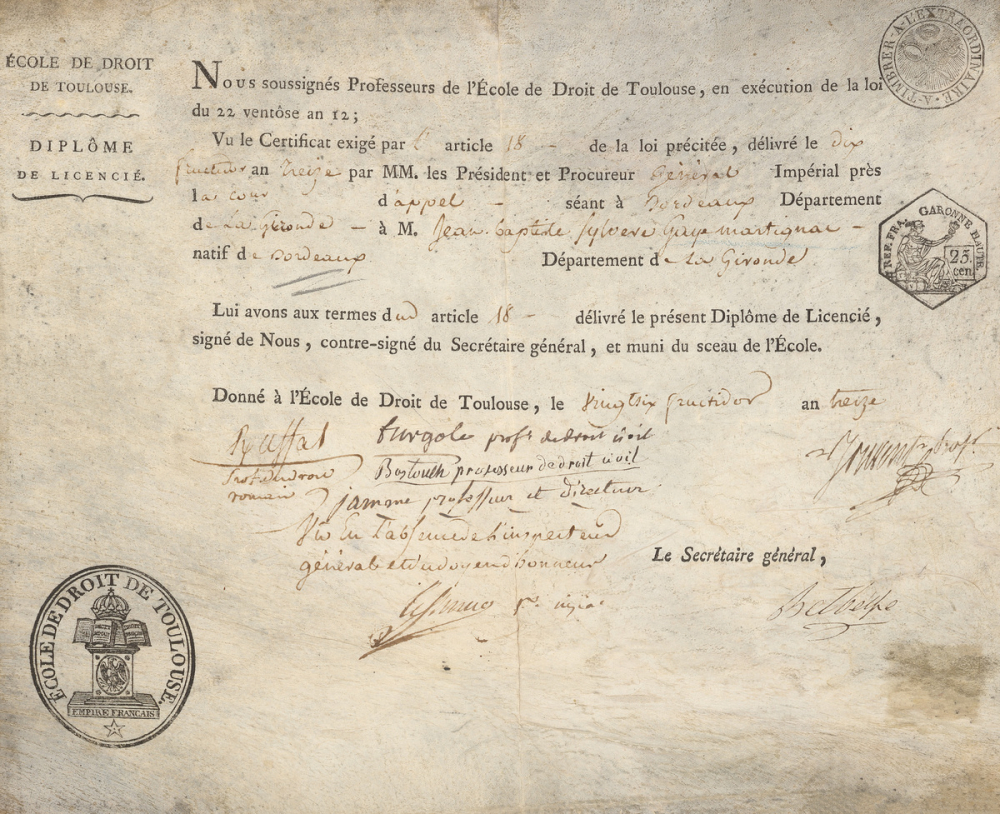 ÉCOLE DE DROIT
DE TOULOUSE.
DIPLÔME
DE LICENCIÉ.
A-TIMBRER-A-L'EXTRAORDINAIRE
Nous soussignés Professeurs de l'École de Droit de Toulouse, en exécution de la loi
du 22 ventôse an 12;
Vu le Certificat exigé par l' article 18 - de la loi précitée, délivré le dix
fructidor an treize par MM. les Président et Procureur Général Impérial près
la cour d'appel - séant à Bordeaux Département
de La Gironde - à M. Jean-baptiste Sylvere Gaye martignac -
natif de Bordeaux Département de La Gironde
REP. FRA. GARONNE HAUTE
25.
cen.
Lui avons aux termes dud article 18 - délivré le présent Diplôme de Licencié,
signé de Nous, contre-signé du Secrétaire général, et muni du sceau de l'École.
Donné à l'École de Droit de Toulouse, le Vingtsix fructidor an treize
Ruffat turgole profr de droit civil
Prof de droit romain
Bastouth professeur de droit civil
jamme professeur et directeur
Vû En l'absence de l'inspecteur
général et du doyen d'honneur
Le Secrétaire général,
ÉCOLE DE DROIT DE TOULOUSE.
EMPIRE FRANCAIS